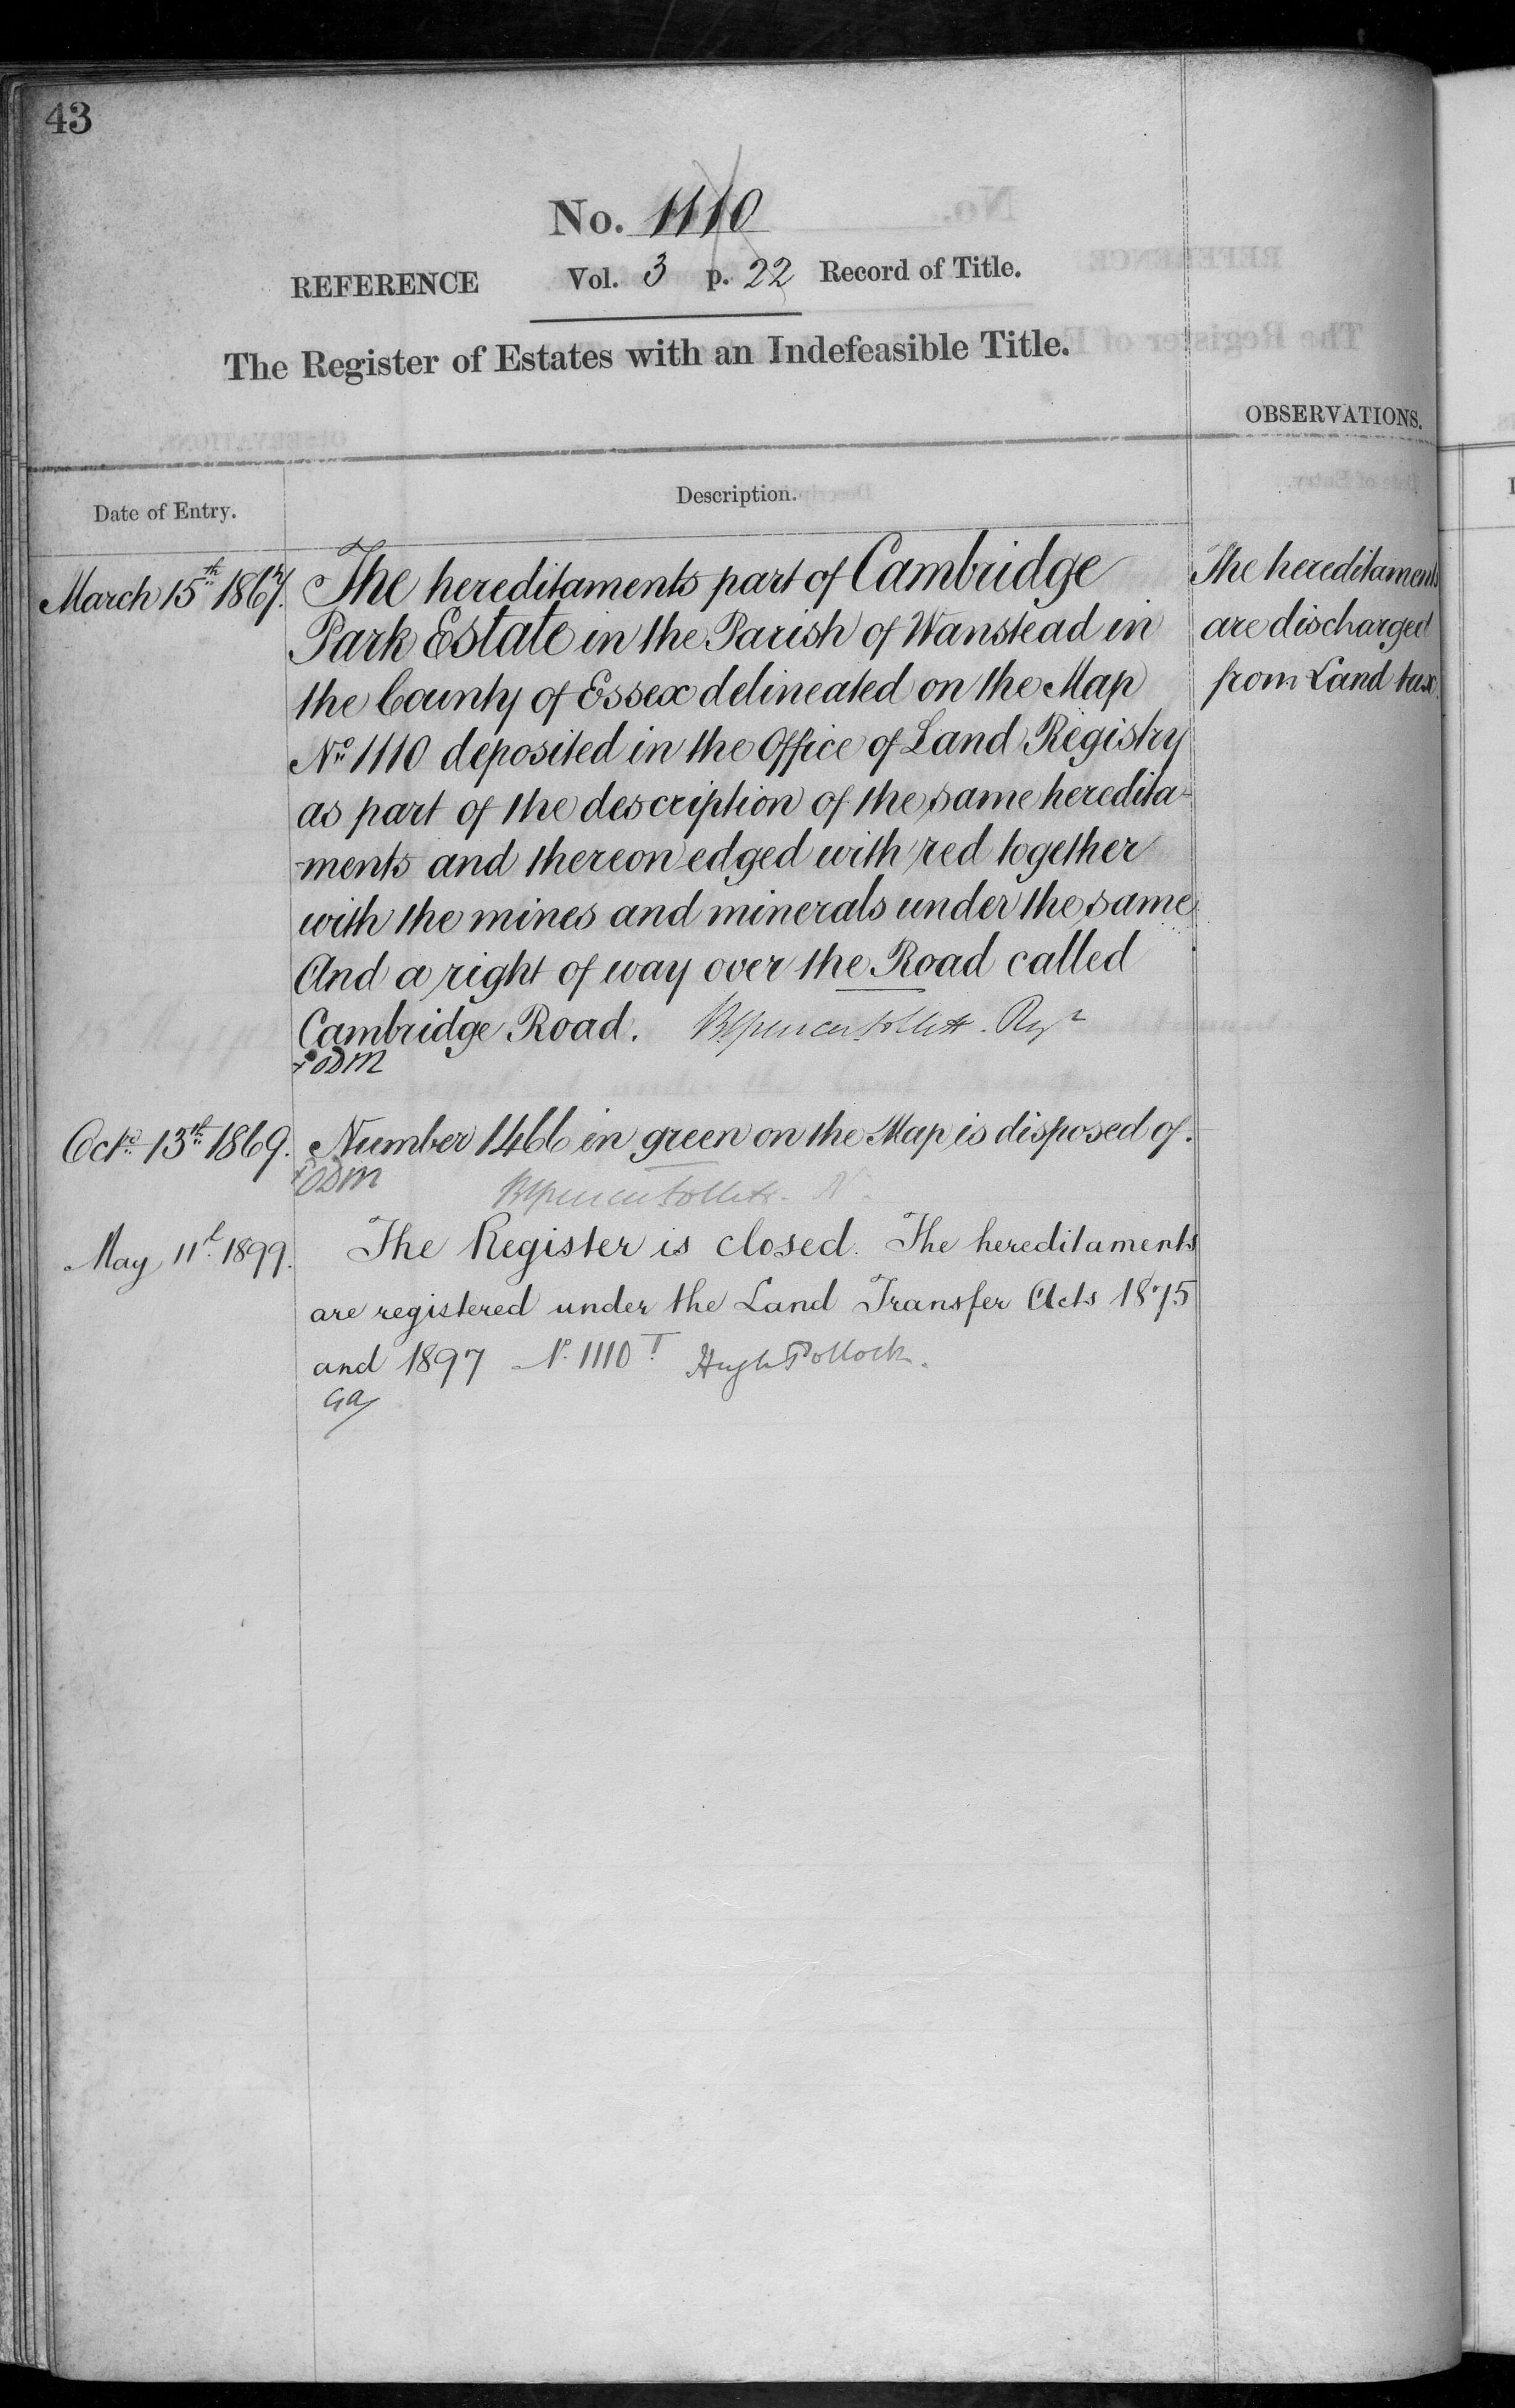 43
No. 1110
REFERENCE Vol. 3 p. 22 Record of Title.
The Register of Estates with an Indefeasible Title.
OBSERVATIONS.
Date of Entry. Description.
March 15th 1867. The hereditaments part of Cambridge
Park Estate in the Parish of Wanstead in
the County of Essex delineated on the Map
No 1110 deposited in the Office of Land Registry
as part of the description of the same heredita-
-ments and thereon edged with red together
with the mines and minerals under the same
And a right of way over the Road called
Cambridge Road. Brent Spencer Follett. Regr
The hereditaments
are discharged
from Land tax
Octr 13th 1869. Number 1466 in green on the Map is disposed of.
May 11th 1899. The Register is closed. The hereditaments
are registered under the Land Transfer Acts 1875
and 1897 No. 1110 T Hugh Pollock.